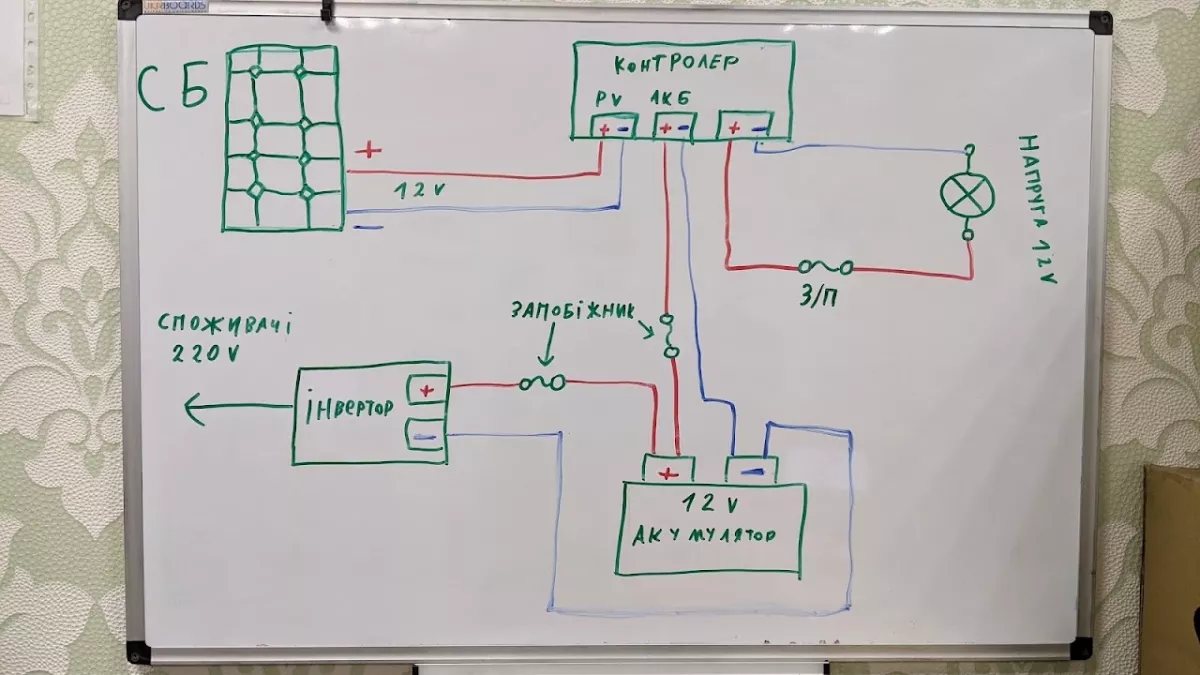 UKRBOARDS
СБ
+
12V
−
КОНТРОЛЕР
PV АКБ
+ − + − + −
НАПРУГА 12V
З/П
ЗАПОБІЖНИК
СПОЖИВАЧІ
220V
інвертор
+
−
+ −
12V
АКУМУЛЯТОР